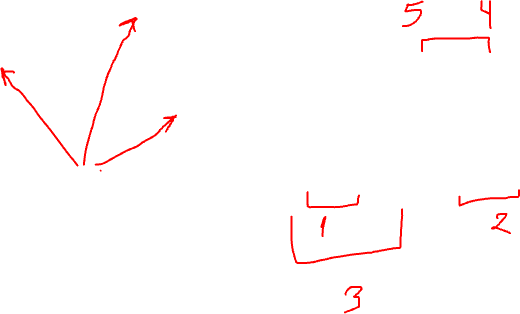 5 4
1
2
3